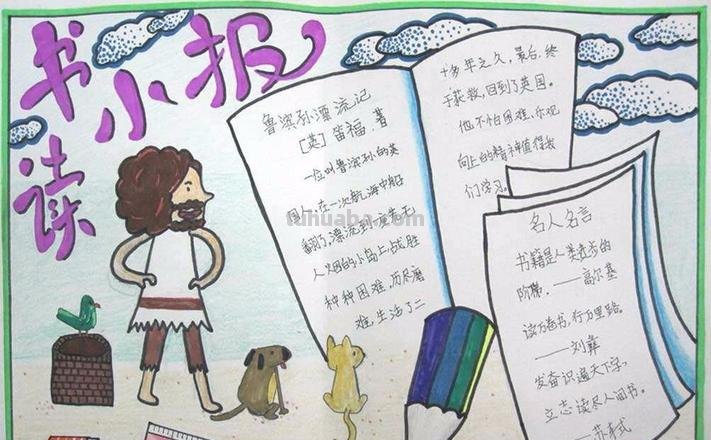 读书小报
鲁滨孙漂流记
[英] 笛福 著
一位叫鲁滨孙的英
国人,在一次航海中船
翻了,漂流到一座荒无
人烟的小岛上,战胜
种种困难,历尽磨
难,生活了二
十多年之久,最后,终
于获救,回到了英国。
他不怕困难、乐观
向上的精神值得我
们学习。
名人名言
书籍是人类进步的
阶梯。——高尔基
读万卷书,行万里路
——刘彝
发奋识遍天下字,
立志读尽人间书。
——苏
tuhuaba.com